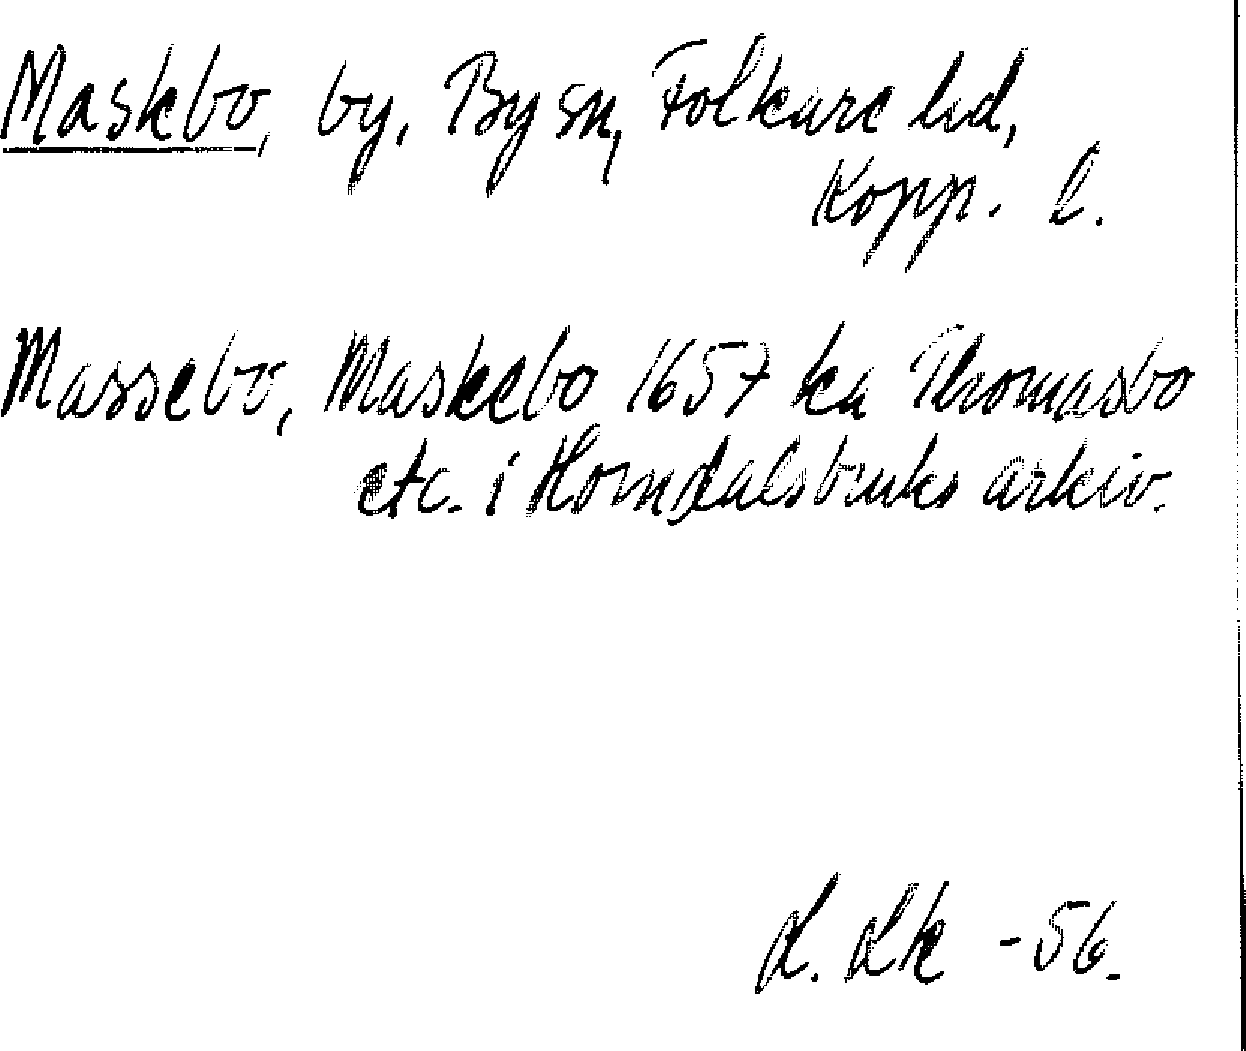 Maskbo, by, By sn, Folkare hd,
Kopp. l.
Massebo, Maskebo 1657 ka Thomasbo
etc. i Horndalsbruks arkiv.
L. Lk -56.